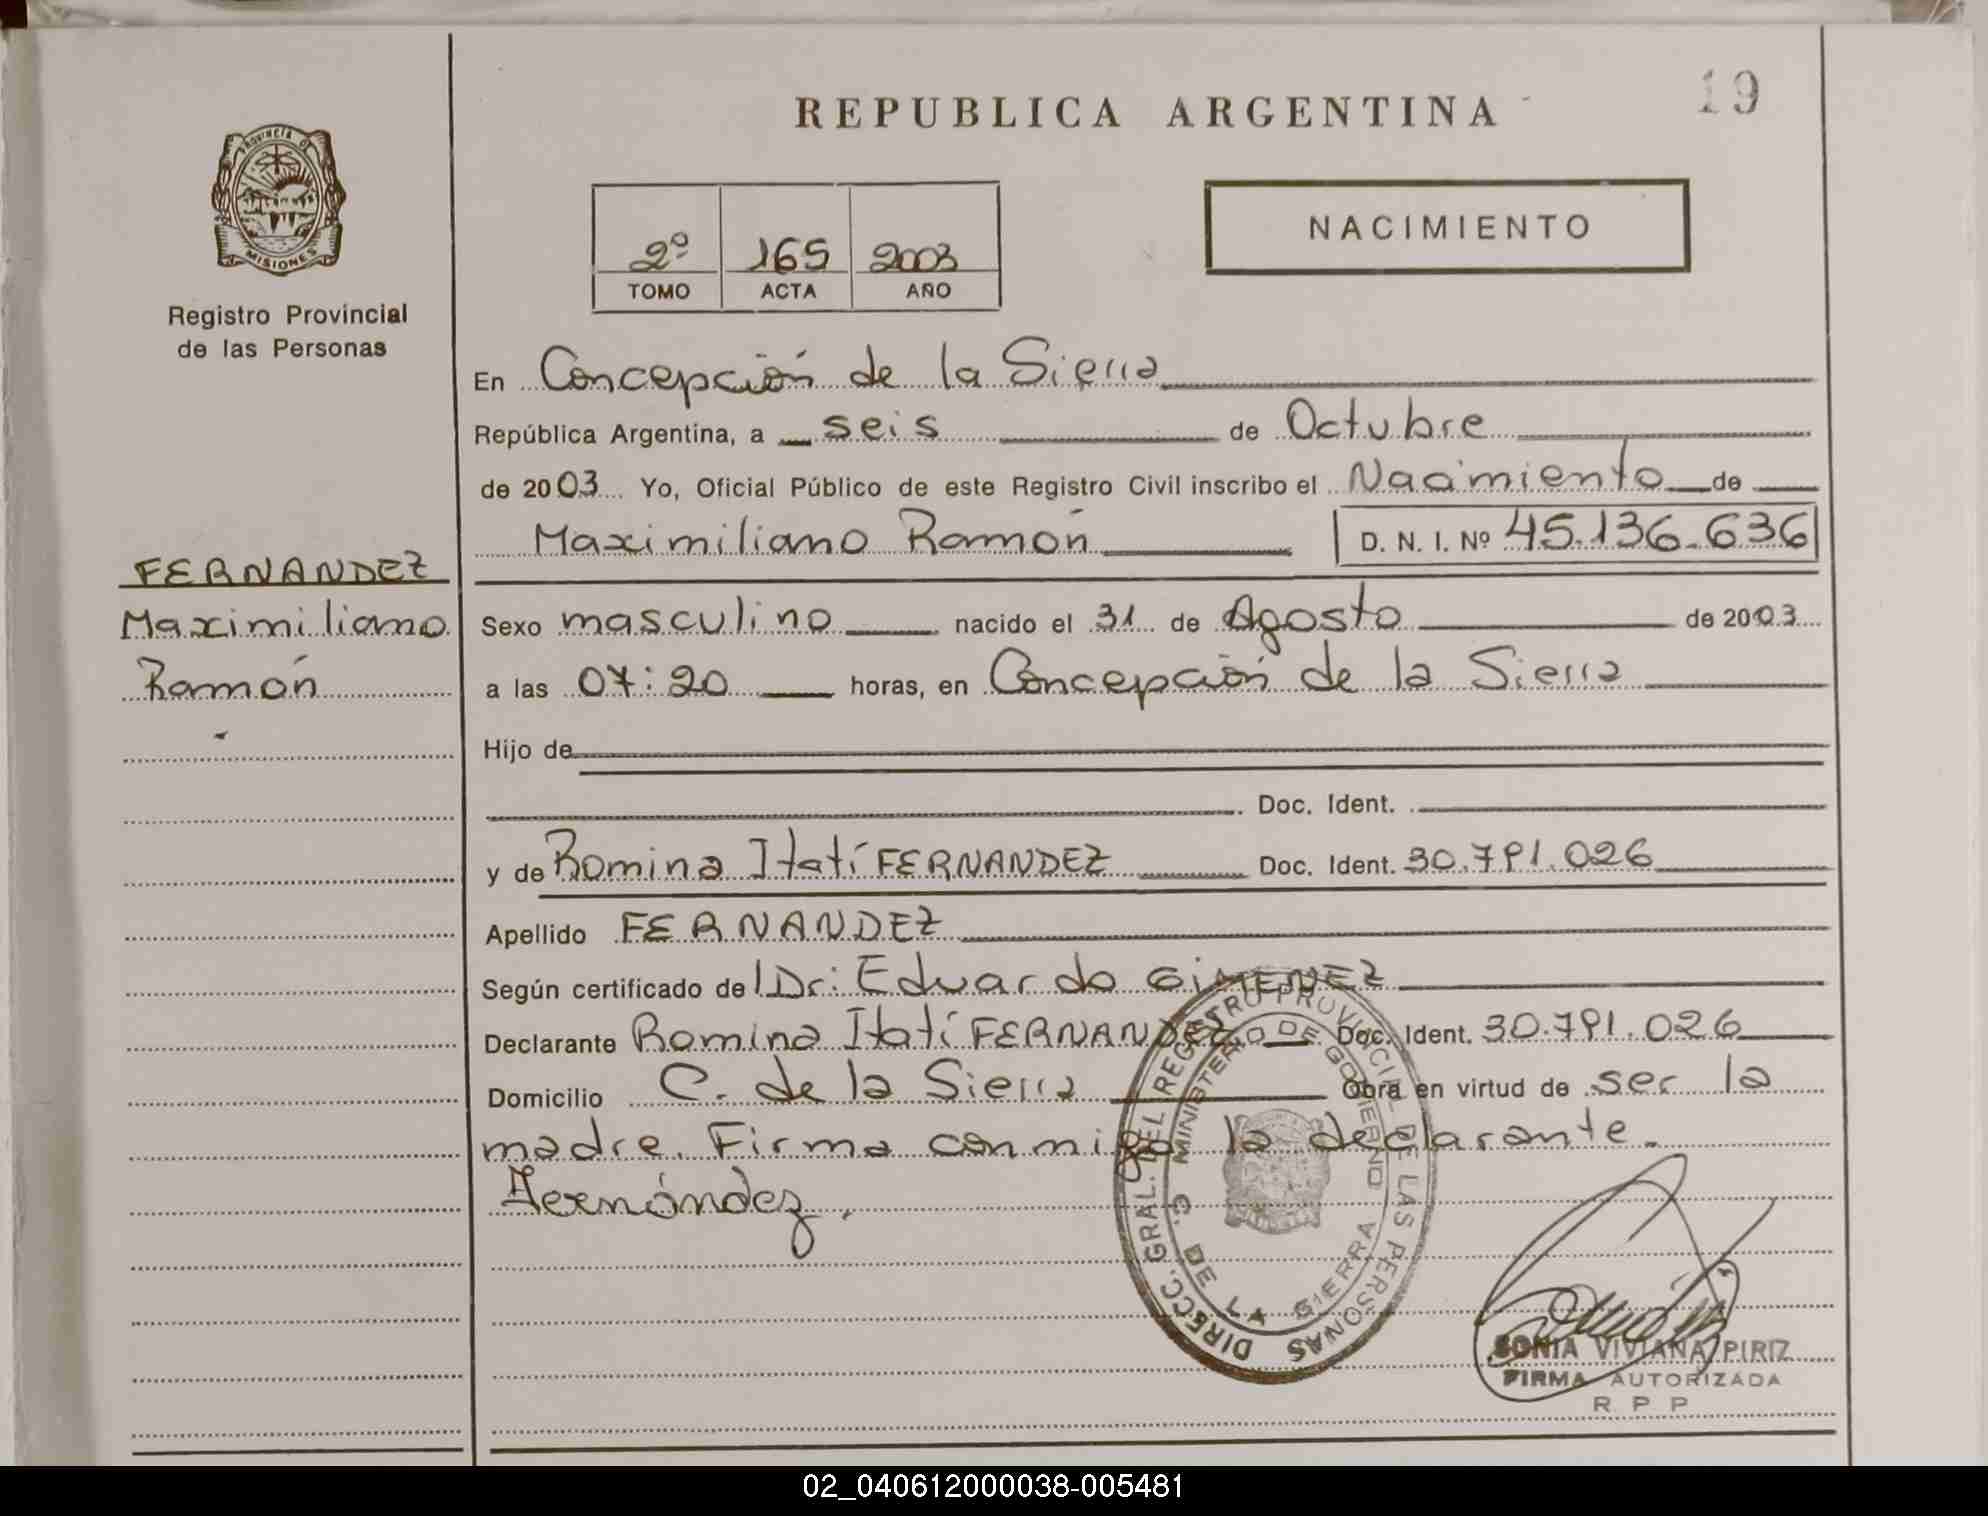 19
REPUBLICA ARGENTINA
PROVINCIA DE
MISIONES
Registro Provincial
de las Personas
2º 165 2003
TOMO ACTA AÑO
NACIMIENTO
En Concepción de la Sierra
República Argentina, a seis de Octubre
de 2003 Yo, Oficial Público de este Registro Civil inscribo el Nacimiento de
Maximiliano Ramón D. N. I. Nº 45.136.636
FERNANDEZ
Maximiliano
Ramón
Sexo masculino nacido el 31 de Agosto de 2003
a las 07:20 horas, en Concepción de la Sierra
Hijo de
Doc. Ident.
y de Romina Itatí FERNANDEZ Doc. Ident. 30.791.026
Apellido FERNANDEZ
Según certificado del Dr: Eduardo GIMENEZ
Declarante Romina Itatí FERNANDEZ Doc. Ident. 30.791.026
Domicilio C. de la Sierra Obra en virtud de ser la
madre. Firma conmigo la declarante.
Fernández
DIRECC. GRAL. DEL REGISTRO PROVINCIAL DE LAS PERSONAS
MINISTERIO DE GOBIERNO
C. DE LA SIERRA
SONIA VIVIANA PIRIZ
FIRMA AUTORIZADA
R P P
02_040612000038-005481